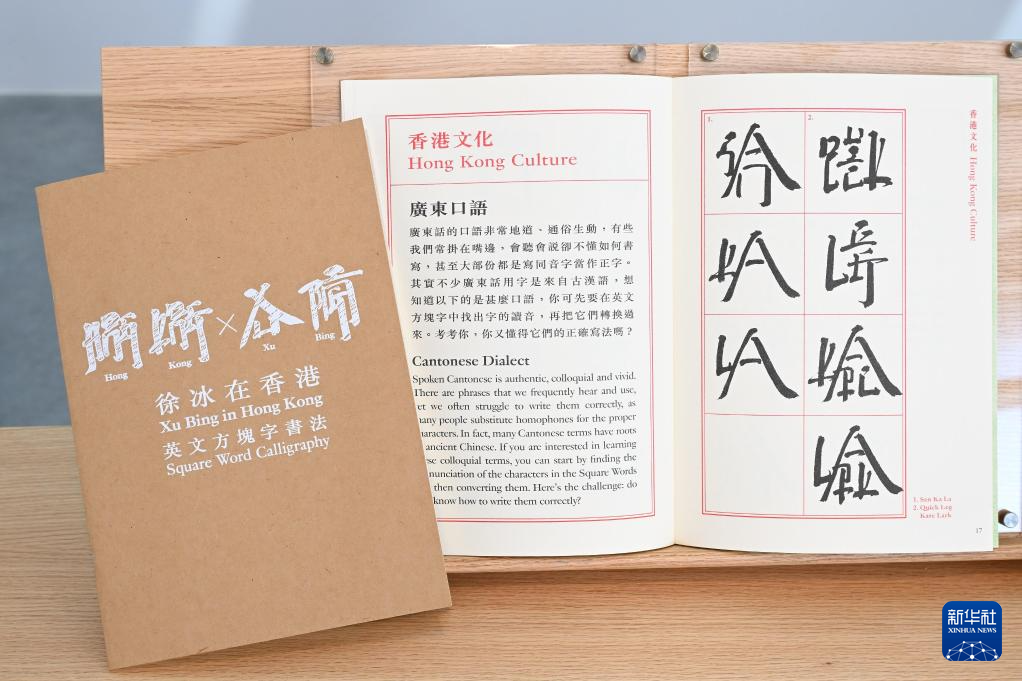 Hong
Kong
×
Xu
Bing
徐冰在香港
Xu Bing in Hong Kong
英文方塊字書法
Square Word Calligraphy
香港文化
Hong Kong Culture
廣東口語
廣東話的口語非常地道、通俗生動，有些
我們常掛在嘴邊，會聽會説卻不懂如何書
寫，甚至大部份都是寫同音字當作正字。
其實不少廣東話用字是來自古漢語，想
知道以下的是甚麼口語，你可先要在英文
方塊字中找出字的讀音，再把它們轉換過
來。考考你，你又懂得它們的正確寫法嗎？
Cantonese Dialect
Spoken Cantonese is authentic, colloquial and vivid.
There are phrases that we frequently hear and use,
we often struggle to write them correctly, as
people substitute homophones for the proper
In fact, many Cantonese terms have roots
ancient Chinese. If you are interested in learning
colloquial terms, you can start by finding the
of the characters in the Square Words
then converting them. Here's the challenge: do
know how to write them correctly?
1.
2.
香港文化 Hong Kong Culture
1. Ka La
2. Quick Leg
Lark
17
新华社
XINHUA NEWS